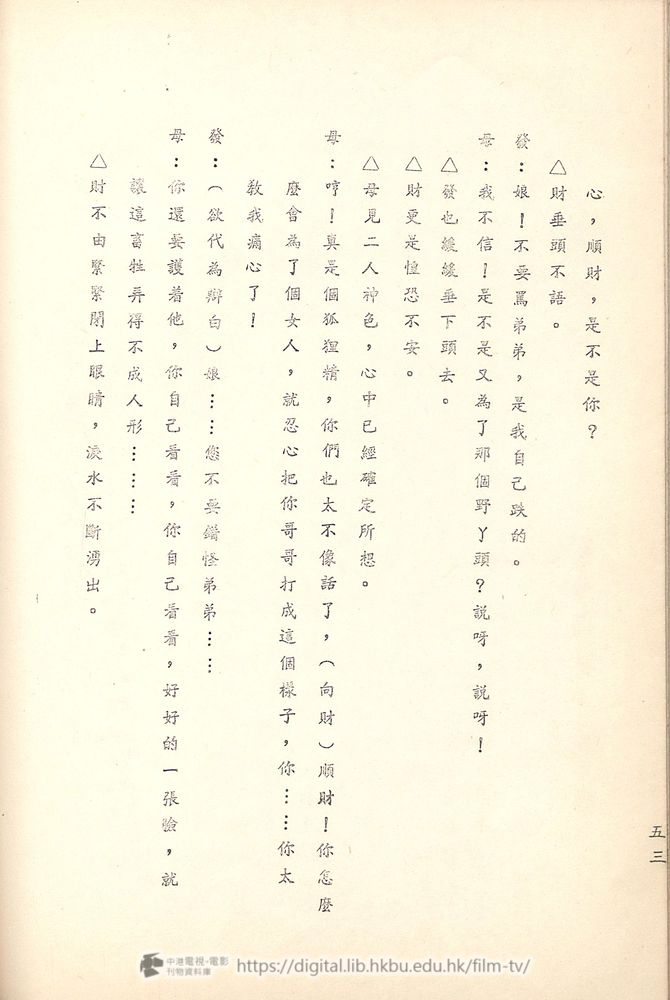 心，順財，是不是你？
△財垂頭不語。
發：娘！不要罵弟弟，是我自己跌的。
母：我不信！是不是又為了那個野丫頭？說呀，說呀！
△發也緩緩垂下頭去。
△財更是惶恐不安。
△母見二人神色，心中已經確定所想。
母：哼！真是個狐狸精，你們也太不像話了，（向財）順財！你怎麼
麼會為了個女人，就忍心把你哥哥打成這個樣子，你……你太
教我痛心了！
發：（欲代為辯白）娘……您不要錯怪弟弟……
母：你還要護着他，你自己看看，你自己看看，好好的一張臉，就
讓這畜牲弄得不成人形……
△財不由緊緊閉上眼睛，淚水不斷湧出。
五三
中港電視·電影
刊物資料庫
https://digital.lib.hkbu.edu.hk/film-tv/